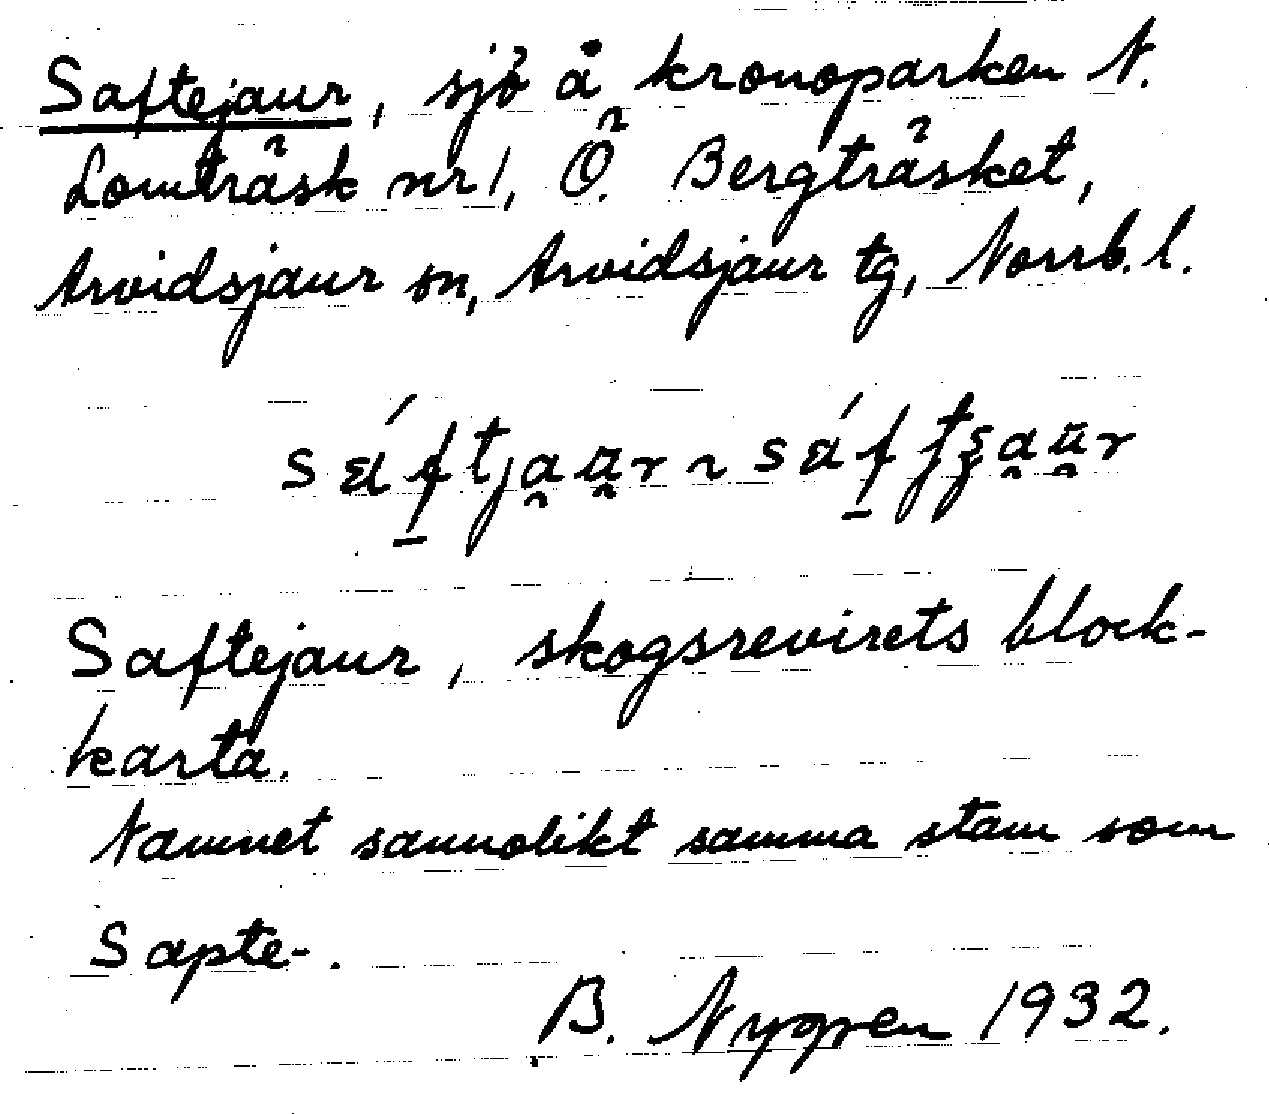 Saftejaur, sjö å kronoparken N.
Lomträsk nr 1, Ö. Bergträsket,
Arvidsjaur sn, Arvidsjaur tg, Norrb. l.
Saftejaur, skogsrevirets block-
karta.
Namnet sannolikt samma stam som
Sapte-.
B. Nygren 1932.